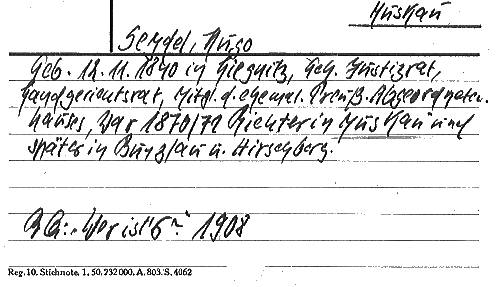 Muskau
Seydel, Hugo
Geb. 12.11.1840 in Liegnitz, Geh. Justizrat,
Landgerichtsrat, Mitgl. d. ehemal. Preuß. Abgeordneten-
hauses, war 1870/72 Richter in Muskau und
später in Bunzlau u. Hirschberg.
"Wer ist's" 1908
Reg.10. Stichnote. 1. 50.732000. A. 803. S. 4062